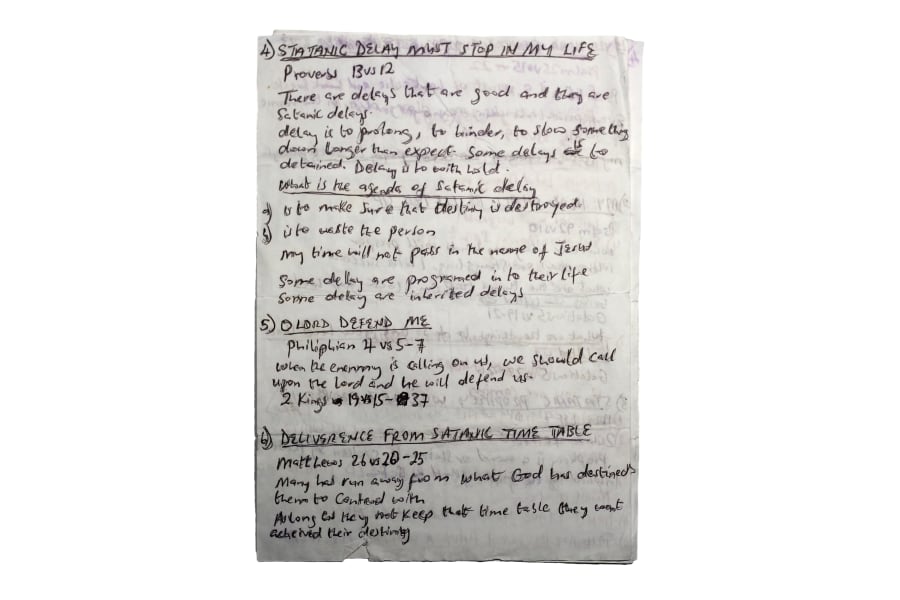 4) STATANIC DELAY MUST STOP IN MY LIFE
Proverbs 13vs12
There are delays that are good and they are
Satanic delays.
delay is to prolong, to hinder, to slow something
down longer than expect. Some delays is to
detained. Delay is to with hold.
What is the agenda of Satanic delay
a) is to make sure that destiny is destroyed.
b) is to waste the person
my time will not pass in the name of Jesus
Some dellay are programed in to their life
Some delay are inherited delays
5) O LORD DEFEND ME
Philiphian 4 vs 5-7
When the enenmy is calling on us, we should call
upon the Lord and he will defend us.
2 Kings 19vs15-37
6) DELIVERENCE FROM SATANIC TIME TABLE
Matthews 26 vs 20-25
Many has run away from what God has destined
them to Contend with
As long as they not keep that time table they wont
acheived their destiny